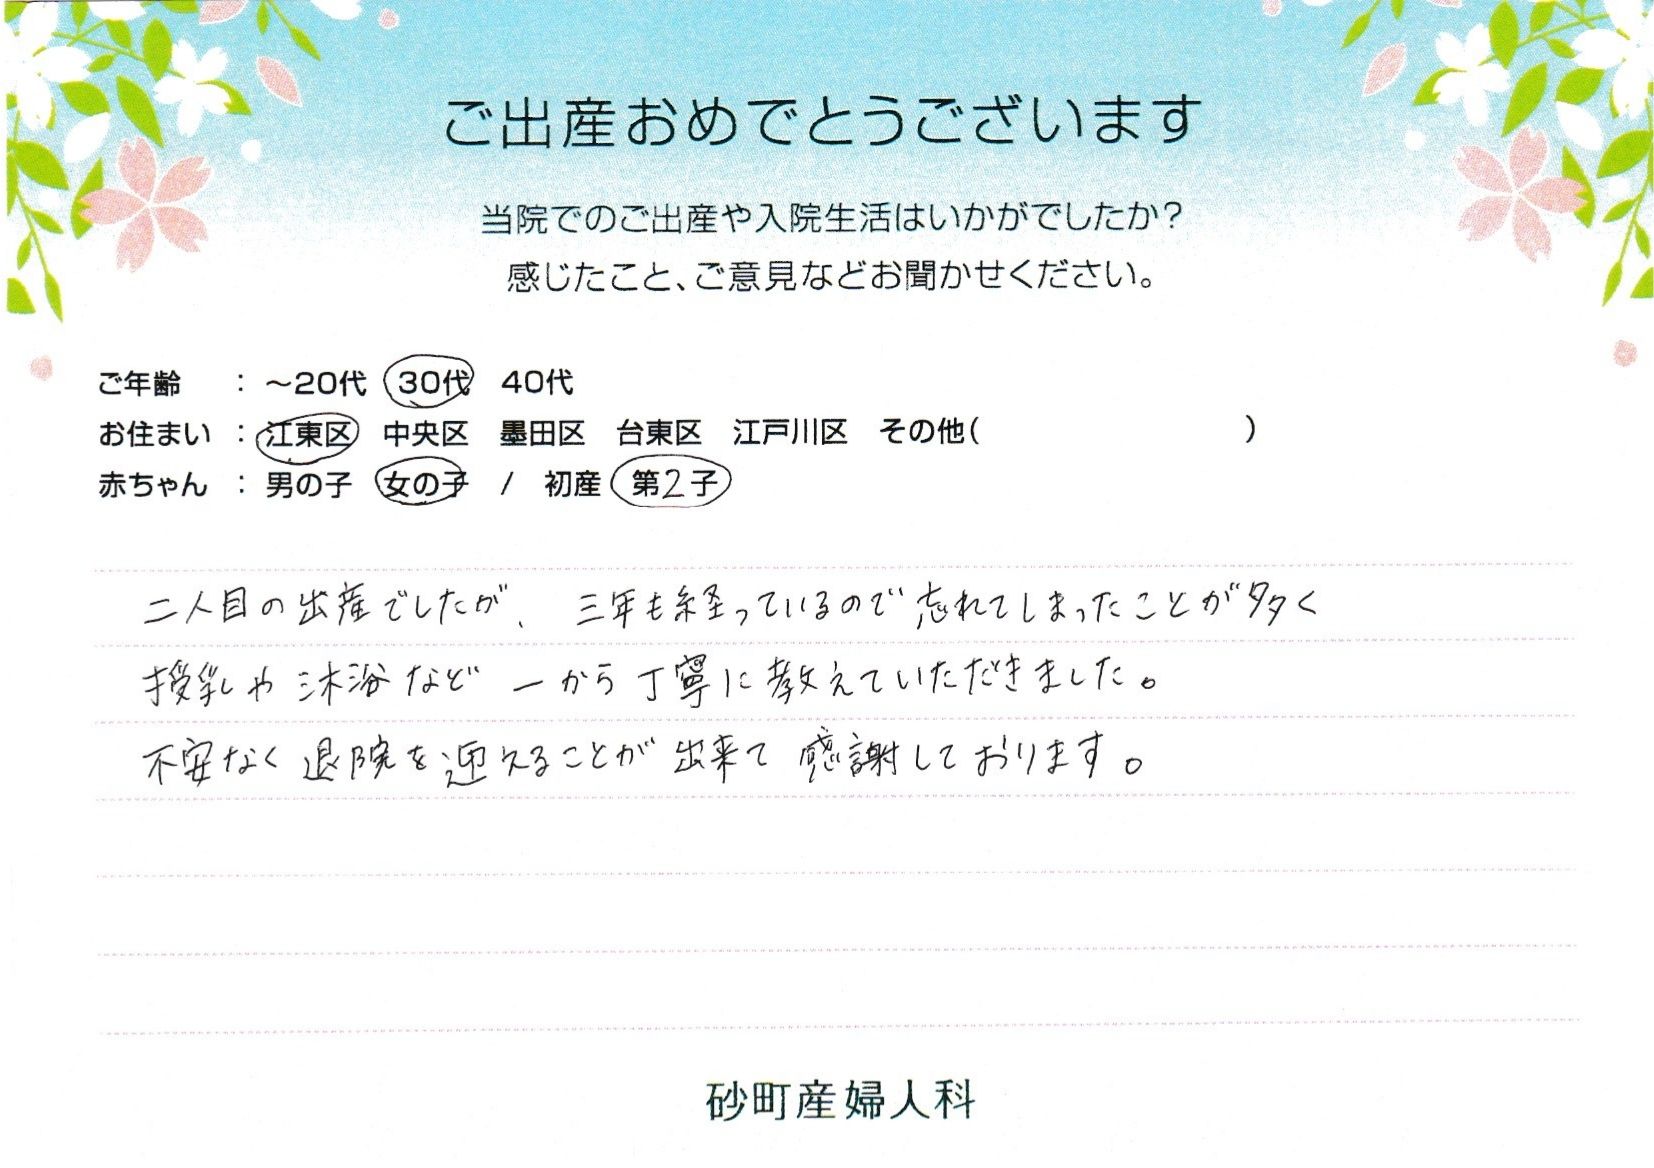 ご出産おめでとうございます
当院でのご出産や入院生活はいかがでしたか?
感じたこと、ご意見などお聞かせください。
ご年齢 : ～20代 30代 40代
お住まい : 江東区 中央区 墨田区 台東区 江戸川区 その他( )
赤ちゃん : 男の子 女の子 / 初産 第2子
二人目の出産でしたが、三年も経っているので忘れてしまったことが多く
授乳や沐浴など一から丁寧に教えていただきました。
不安なく退院を迎えることが出来て感謝しております。
砂町産婦人科